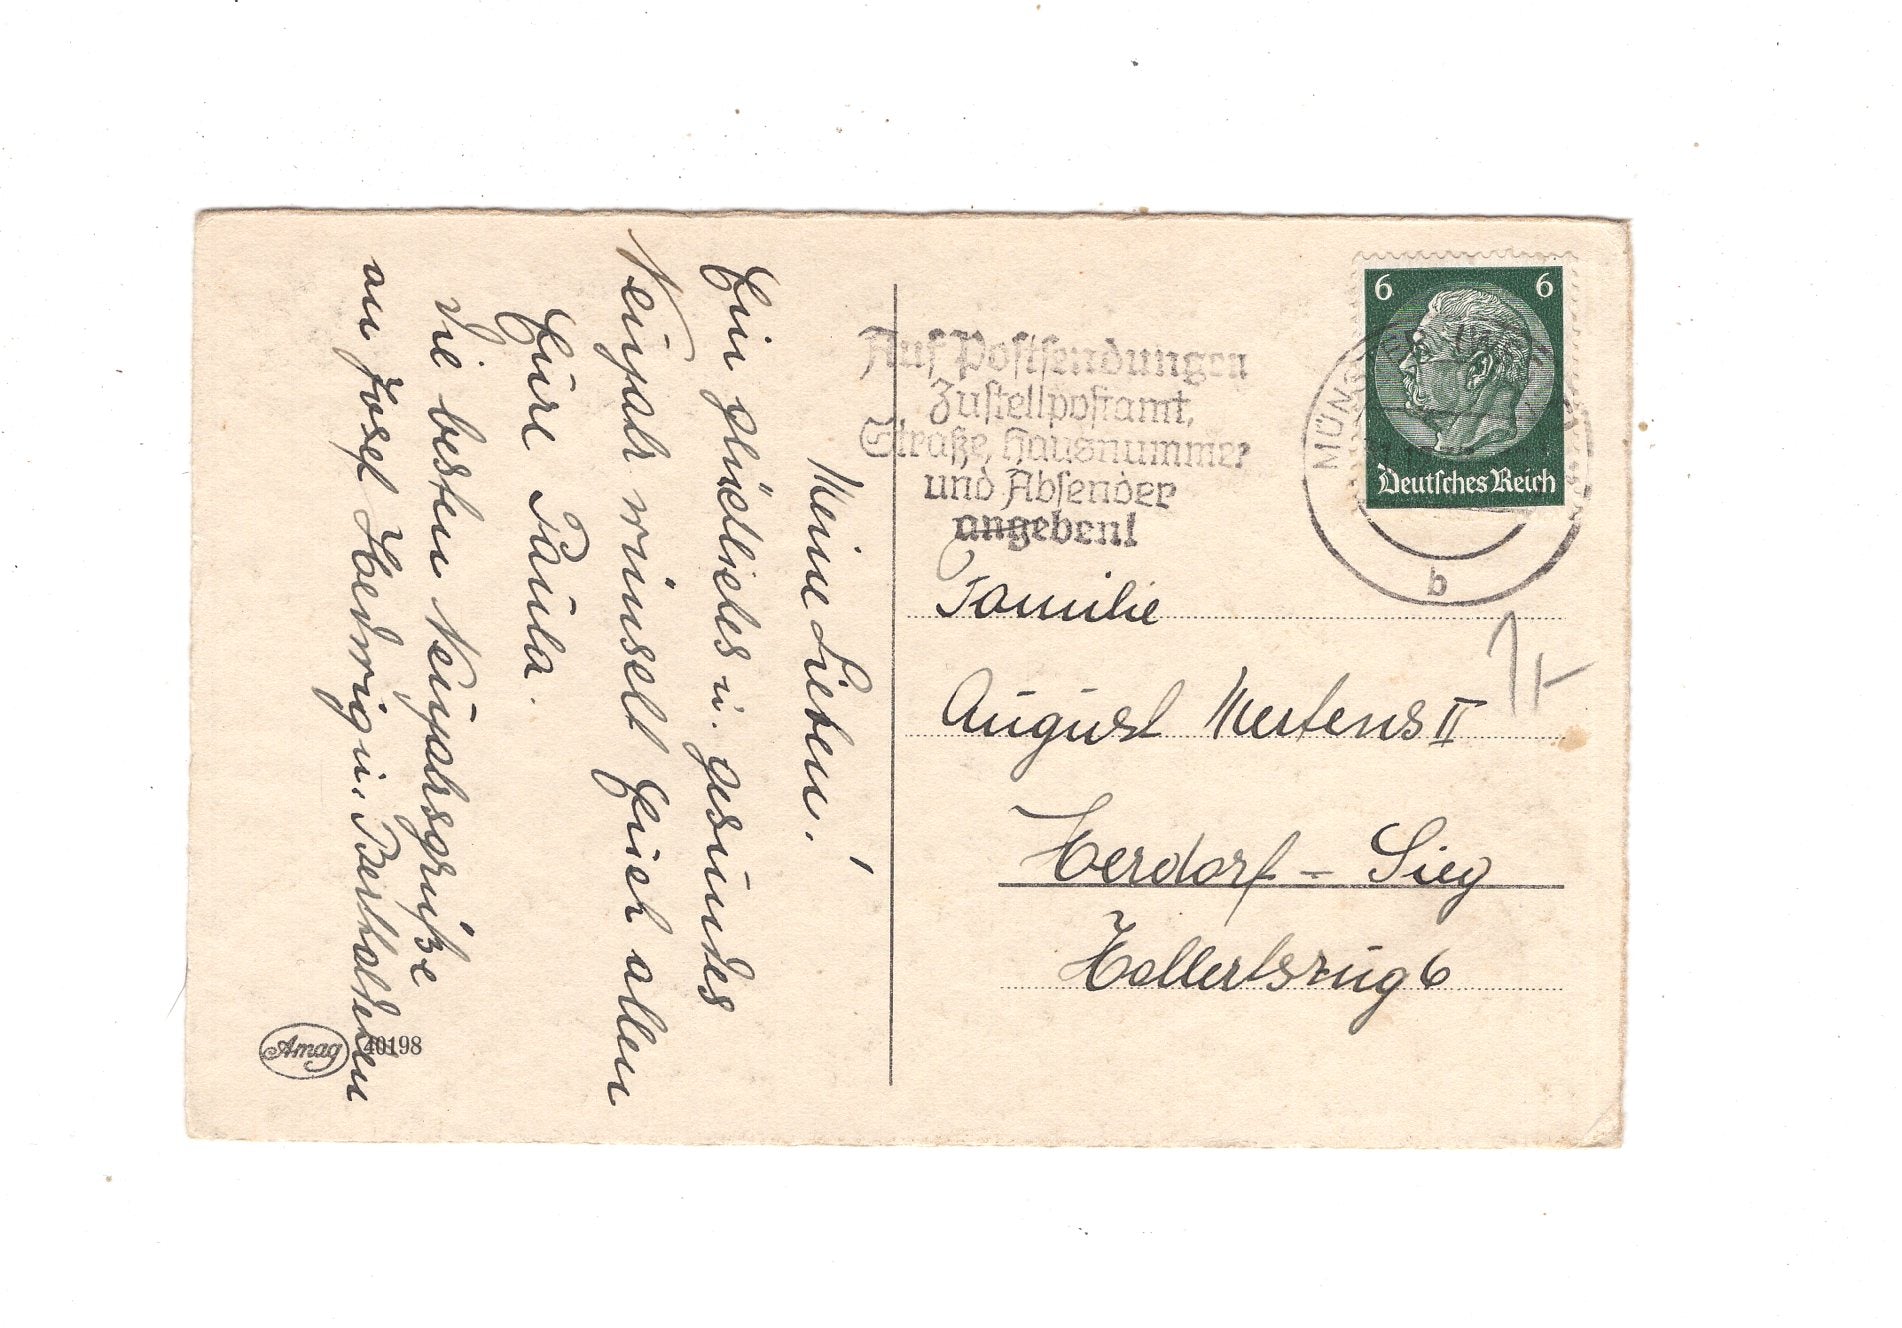 Meine Lieben!
Ein glückliches u. gesundes
Neujahr wünscht Euch allen
Eure Paula.
Die besten Neujahrsgrüße
an Josef Hedwig u.
Amag 40198
Auf Postsendungen
Zustellpostamt,
Straße, Hausnummer
und Absender
angeben!
6 6
Deutsches Reich
b
Familie
August Mertens II
Herdorf - Sieg
Hollertszug 6